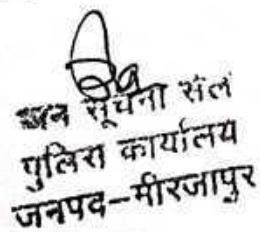 जन सूचना सेल
पुलिस कार्यालय
जनपद–मीरजापुर